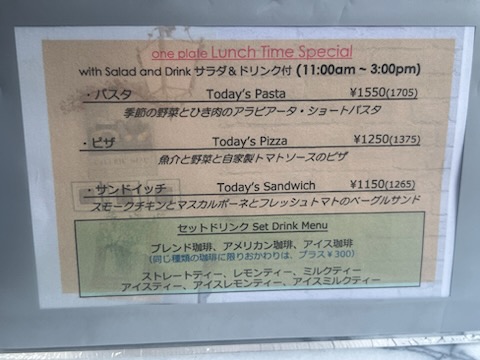 one plate Lunch Time Special
with Salad and Drink サラダ＆ドリンク付 (11:00am ~ 3:00pm)
・パスタ Today's Pasta ¥1550(1705)
季節の野菜とひき肉のアラビアータ・ショートパスタ
・ピザ Today's Pizza ¥1250(1375)
魚介と野菜と自家製トマトソースのピザ
・サンドイッチ Today's Sandwich ¥1150(1265)
スモークチキンとマスカルポーネとフレッシュトマトのベーグルサンド
セットドリンク Set Drink Menu
ブレンド珈琲、アメリカン珈琲、アイス珈琲
(同じ種類の珈琲に限りおかわりは、プラス￥300)
ストレートティー、レモンティー、ミルクティー
アイスティー、アイスレモンティー、アイスミルクティー